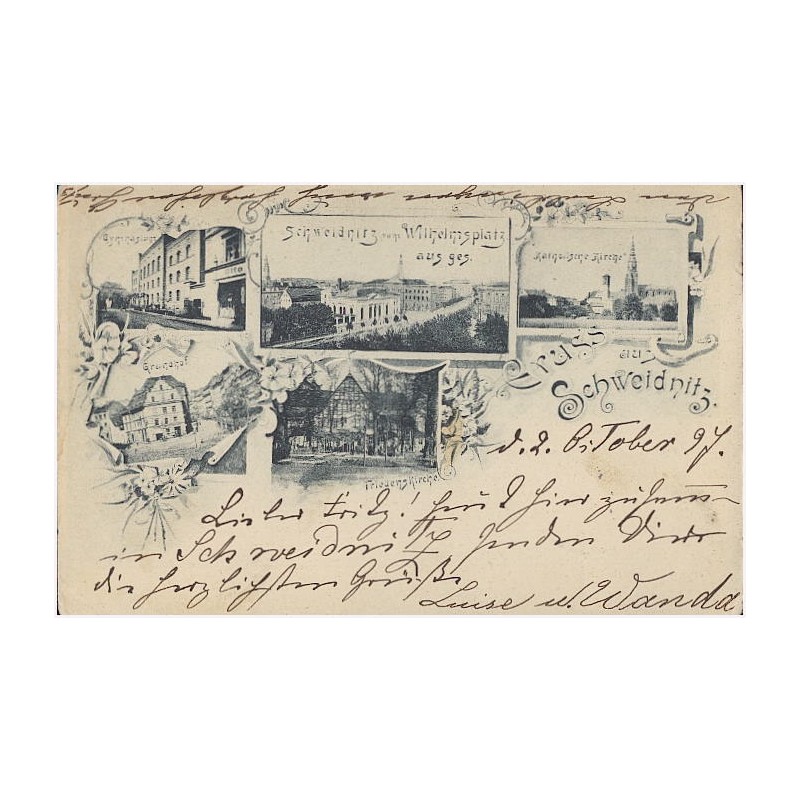 Gymnasium
Schweidnitz vom Wilhelmsplatz
aus ges.
Katholische Kirche
Grundhof
Friedenskirche
Gruss
aus
Schweidnitz.
d. 2. Oktober 97.
Lieber Fritz! heut hier
in Schweidnitz senden Dir
die herzlichsten Grüße
Luise u. Wanda